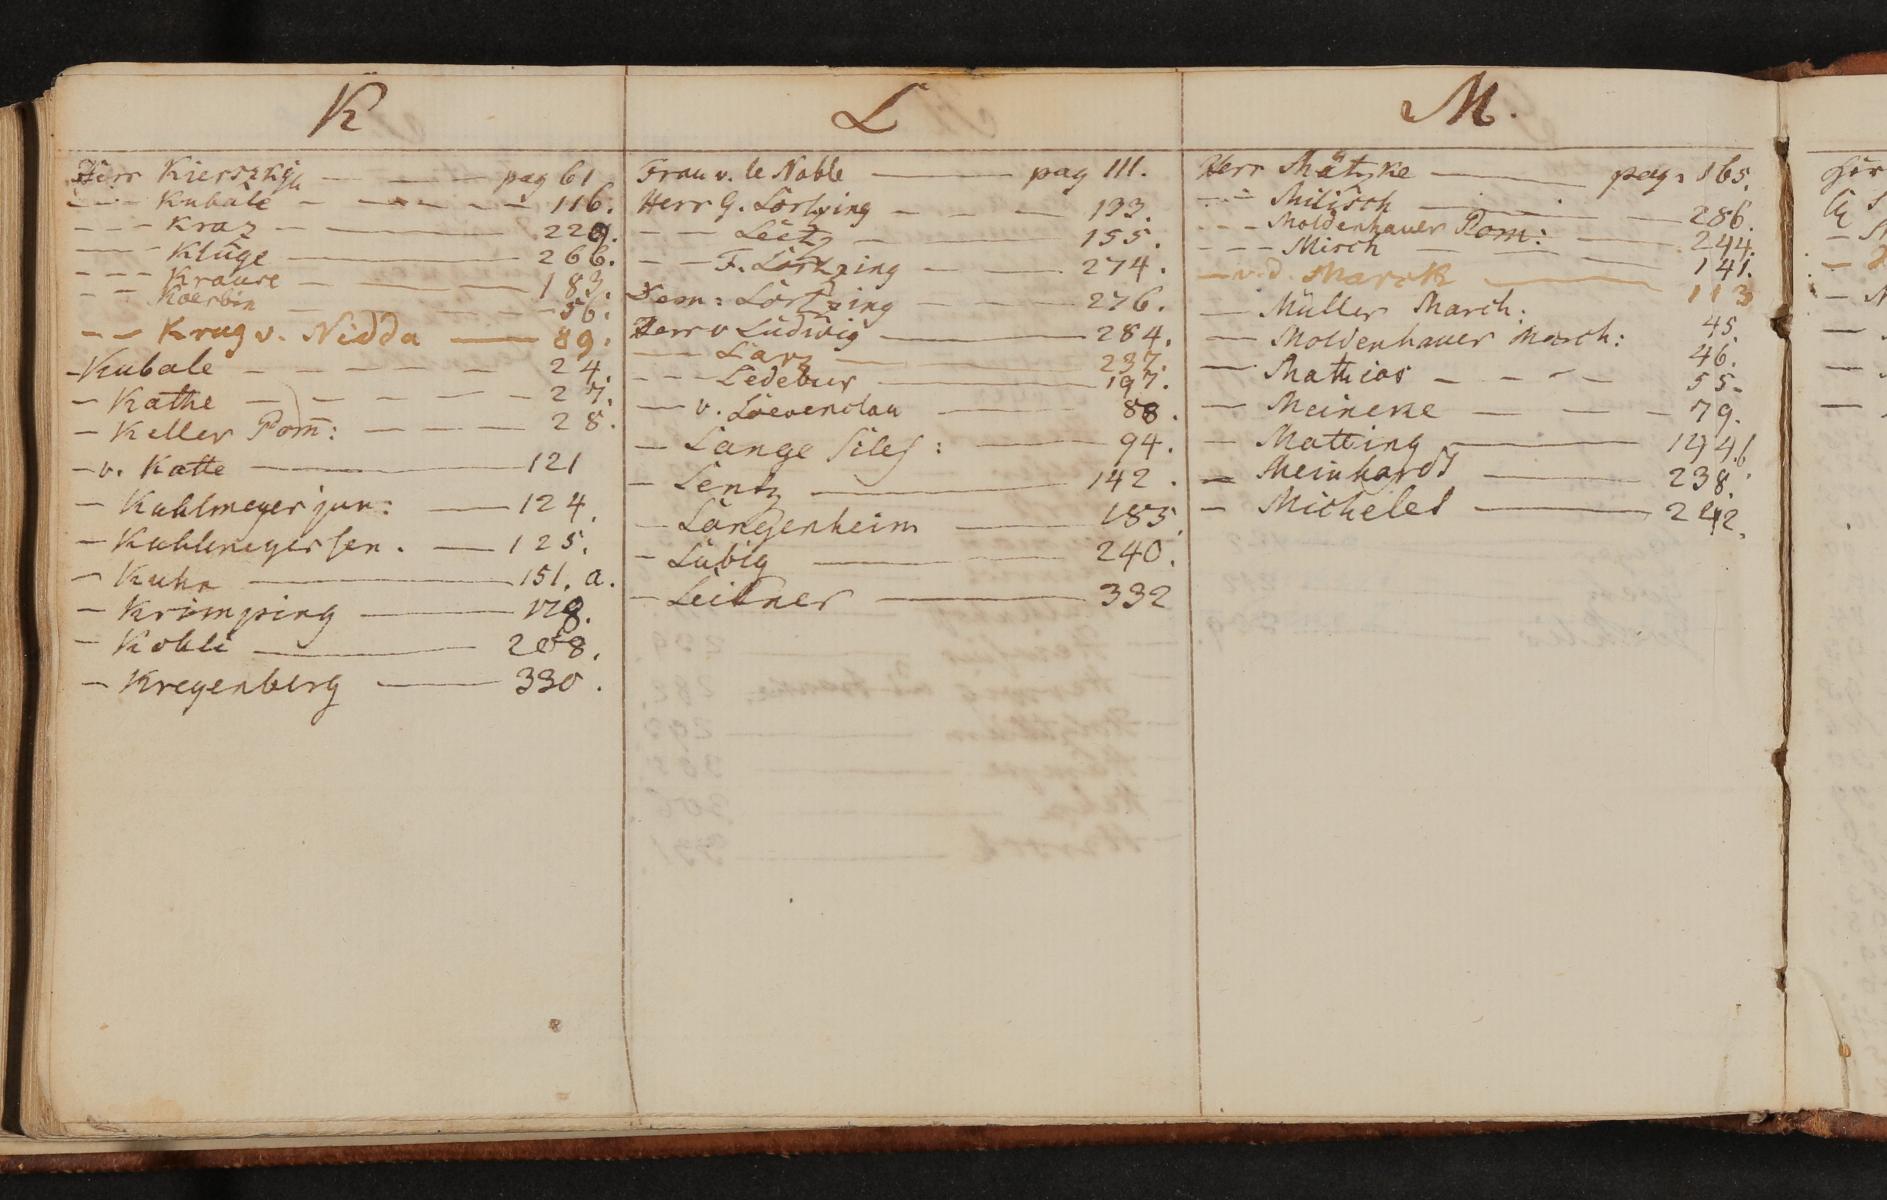 K
Herr Kierszkysh — — — pag 61
— — Kubale — — — — 116.
— — — Kraz — — — 229.
— — — Klüge — 266.
— — — Krause — — — 183.
— — Koerbin — — — 56.
— — Krug v. Nidda — 89.
— Kubale — — — — — 24.
— Kathe — — — — — 27.
— Keller Pom̄: — — — — 28.
— v. Katte — 121
— Kuhlmeyer jun: — 124.
— Kuhlmeyer sen. — 125.
— Kuhn — 151. a.
— Krimping — 178.
— Kohli — 208.
— Kregenberg — 330.
L
Frau v. le Noble — pag 111.
Herr G. Lörtzing — — — 133.
— — Leetz — — — 155.
— — F. Lörtzing — — 274.
Dem: Lörtzing — — 276.
Herr v Ludwig — 284.
— — Larz — 237.
— — — Ledebur — 197.
— v. Loevenclau — 88.
— Lange Siles: — 94.
— Lentz — 142.
— Langenheim — 185.
— Lübig — 240.
— Leitner — 332
M.
Herr Mätzke — pag: 165.
— — Milisch — 286.
— — — Moldenhauer Pom: — 244.
— — — Mirch — — — 141.
— v. d. Marck — 113
— Müller March: 45.
— Moldenhauer March: 46.
— Mathias — — — — 55.
— Meineke — — — — 79.
— Matting — 194.b
— Meinhardt — 238.
— Michelet — 242.